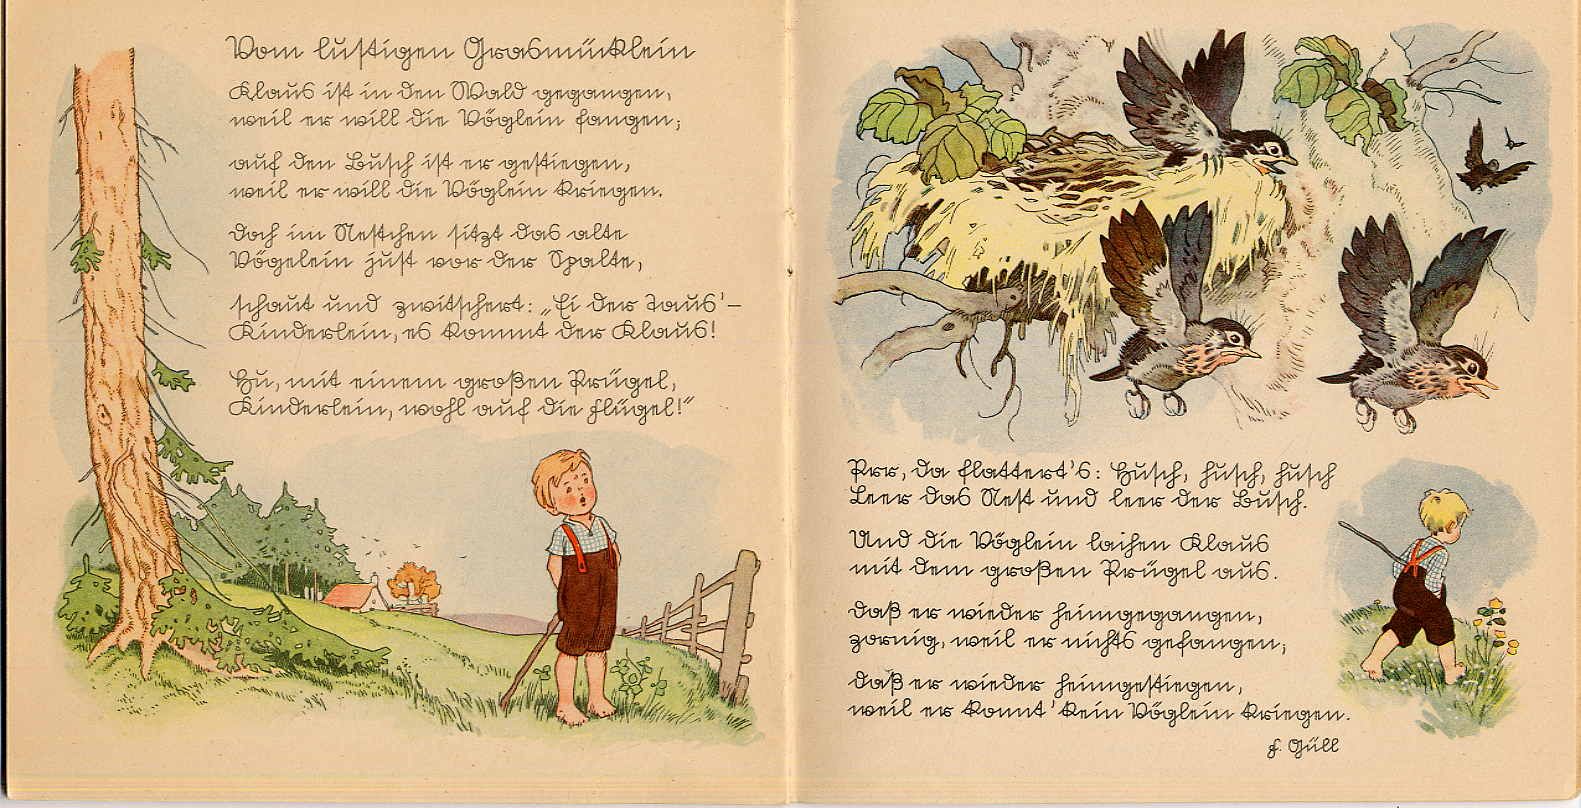 Vom lustigen Grasmücklein
Klaus ist in den Wald gegangen,
weil er will die Vöglein fangen;
auf den Busch ist er gestiegen,
weil er will die Vöglein kriegen.
Doch im Nestchen sitzt das alte
Vögelein just vor der Spalte,
schaut und zwitschert: „Ei der Taus'–
Kinderlein, es kommt der Klaus!
Hu, mit einem großen Prügel,
Kinderlein, wohl auf die Flügel!“
Prr, da flattert's: Husch, husch, husch
Leer das Nest und leer der Busch.
Und die Vöglein lachen Klaus
mit dem großen Prügel aus.
Daß er wieder heimgegangen,
zornig, weil er nichts gefangen;
Daß er wieder heimgestiegen,
weil er konnt' kein Vöglein kriegen.
F. Güll